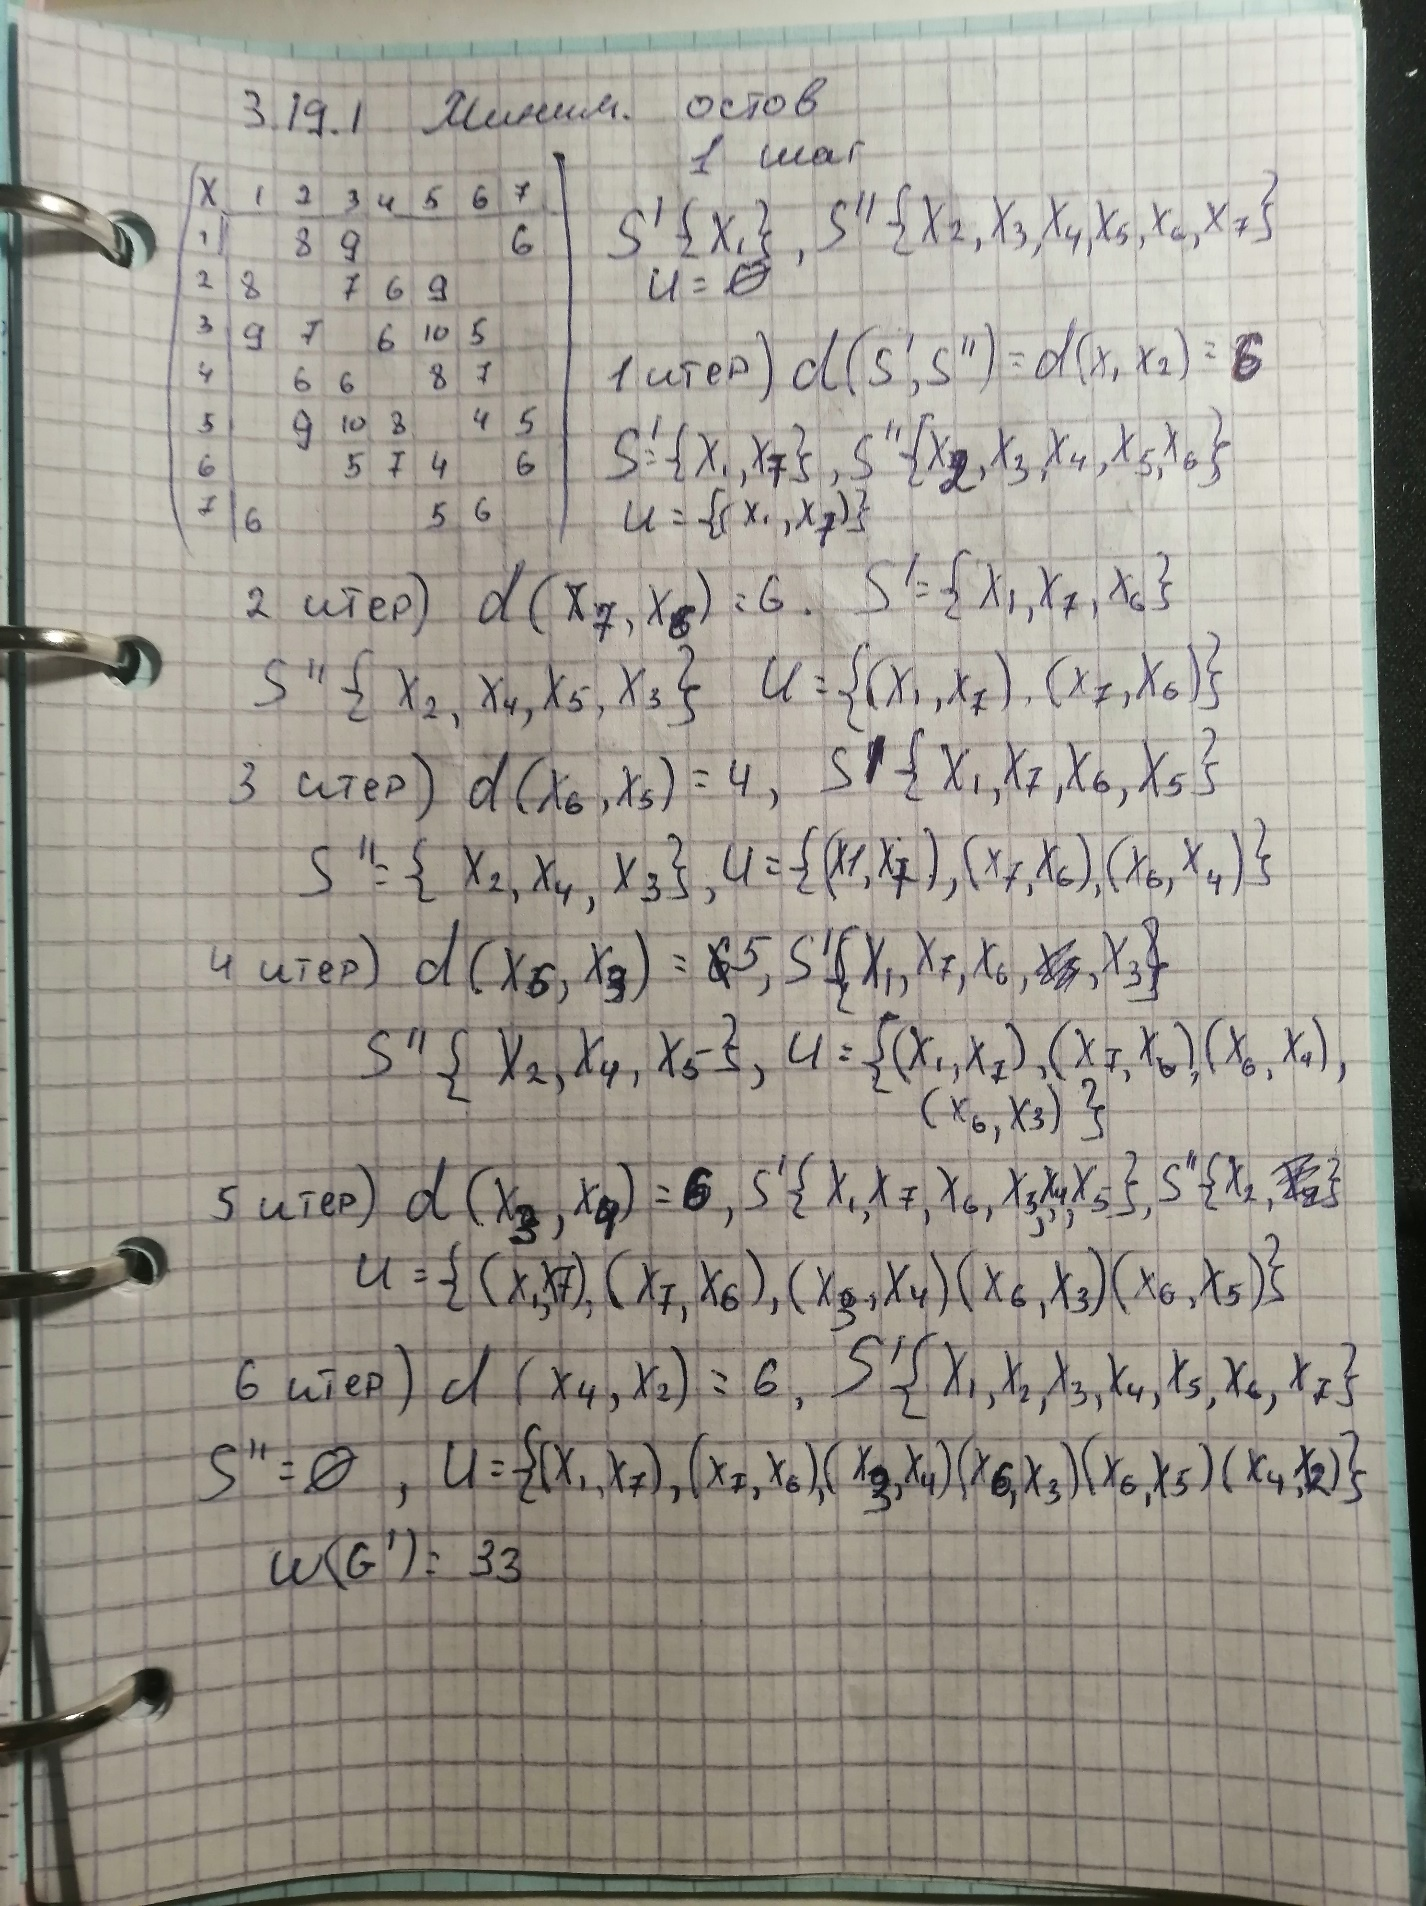 3.19.1 Миним. остов
1 шаг
X 1 2 3 4 5 6 7
1 8 9 6
2 8 7 6 9
3 9 7 6 10 5
4 6 6 8 7
5 9 10 8 4 5
6 5 7 4 6
7 6 5 6
S' {X₁}, S'' {X₂, X₃, X₄, X₅, X₆, X₇}
U = ∅
1 итер) d(S', S'') = d(X₁ X₂) = 6
S' = {X₁, X₇}, S'' {X₂, X₃, X₄, X₅, X₆}
U = {(X₁, X₇)}
2 итер) d(X₇, X₆) = 6. S' = {X₁, X₇, X₆}
S'' { X₂, X₄, X₅, X₃} U = {(X₁, X₇), (X₇, X₆)}
3 итер) d(X₆, X₅) = 4, S' { X₁, X₇, X₆, X₅}
S'' = { X₂, X₄, X₃}, U = {(X1, X₇), (X₇, X₆), (X₆, X₄)}
4 итер) d(X₆, X₃) = 5, S' {X₁, X₇, X₆, , X₃}
S'' { X₂, X₄, X₅}, U = {(X₁, X₇), (X₇, X₆), (X₆, X₄),
(X₆, X₃) }
5 итер) d(X₃, X₄) = 6, S' { X₁, X₇, X₆, X₃, X₄, X₅}, S'' {X₂, }
U = {(X₁, X7), (X₇, X₆), (X₃, X₄) (X₆, X₃) (X₆, X₅)}
6 итер) d (X₄, X₂) = 6, S' { X₁, X₂, X₃, X₄, X₅, X₆, X₇}
S'' = ∅, U = {(X₁, X₇), (X₇, X₆), (X₃, X₄) (X₆, X₃) (X₆, X₅) (X₄, X₂)}
W(G') = 33